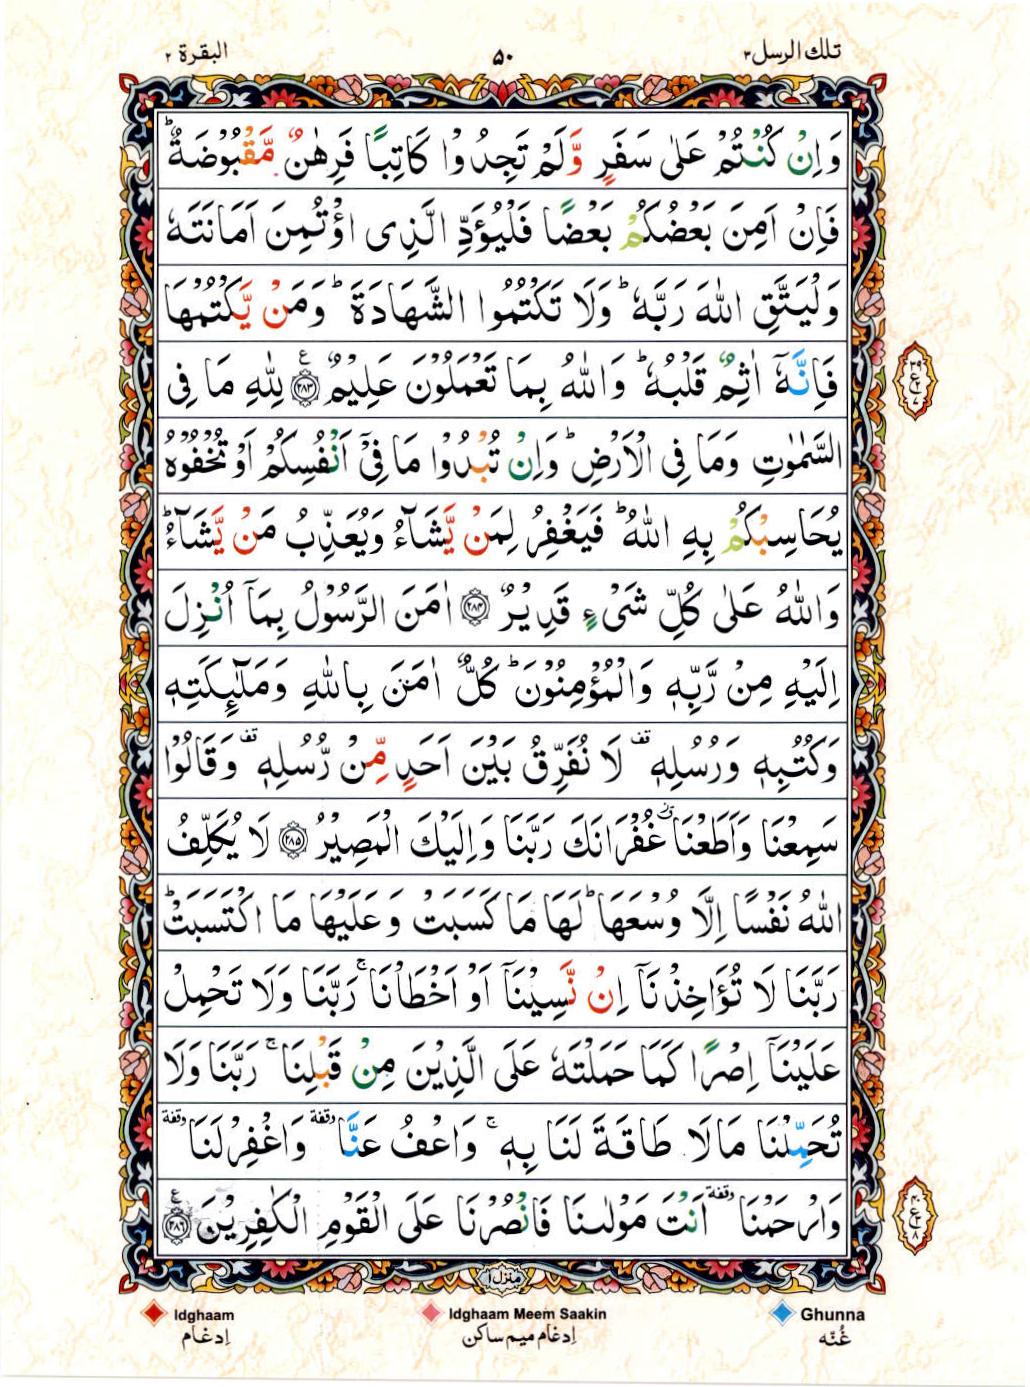 تلك الرسل ٣
٥٠
البقرة ٢
وَاِنْ كُنْتُمْ عَلٰى سَفَرٍ وَّلَمْ تَجِدُوْا كَاتِبًا فَرِهٰنٌ مَّقْبُوْضَةٌ ؕ
فَاِنْ اَمِنَ بَعْضُكُمْ بَعْضًا فَلْيُؤَدِّ الَّذِى اؤْتُمِنَ اَمَانَتَهٗ
وَلْيَتَّقِ اللّٰهَ رَبَّهٗ ؕ وَلَا تَكْتُمُوا الشَّهَادَةَ ؕ وَمَنْ يَّكْتُمْهَا
فَاِنَّهٗۤ اٰثِمٌ قَلْبُهٗ ؕ وَاللّٰهُ بِمَا تَعْمَلُوْنَ عَلِيْمٌ ﴿٢٨٣﴾ ع لِلّٰهِ مَا فِى
السَّمٰوٰتِ وَمَا فِى الْاَرْضِ ؕ وَاِنْ تُبْدُوْا مَا فِىْۤ اَنْفُسِكُمْ اَوْ تُخْفُوْهُ
يُحَاسِبْكُمْ بِهِ اللّٰهُ ؕ فَيَغْفِرُ لِمَنْ يَّشَآءُ وَيُعَذِّبُ مَنْ يَّشَآءُ ؕ
وَاللّٰهُ عَلٰى كُلِّ شَىْءٍ قَدِيْرٌ ﴿٢٨٤﴾ اٰمَنَ الرَّسُوْلُ بِمَاۤ اُنْزِلَ
اِلَيْهِ مِنْ رَّبِّهٖ وَالْمُؤْمِنُوْنَ ؕ كُلٌّ اٰمَنَ بِاللّٰهِ وَمَلٰٓئِكَتِهٖ
وَكُتُبِهٖ وَرُسُلِهٖ قف لَا نُفَرِّقُ بَيْنَ اَحَدٍ مِّنْ رُّسُلِهٖ قف وَقَالُوْا
سَمِعْنَا وَاَطَعْنَا ز غُفْرَانَكَ رَبَّنَا وَاِلَيْكَ الْمَصِيْرُ ﴿٢٨٥﴾ لَا يُكَلِّفُ
اللّٰهُ نَفْسًا اِلَّا وُسْعَهَا ؕ لَهَا مَا كَسَبَتْ وَعَلَيْهَا مَا اكْتَسَبَتْ ؕ
رَبَّنَا لَا تُؤَاخِذْنَاۤ اِنْ نَّسِيْنَاۤ اَوْ اَخْطَاْنَا ۚ رَبَّنَا وَلَا تَحْمِلْ
عَلَيْنَاۤ اِصْرًا كَمَا حَمَلْتَهٗ عَلَى الَّذِيْنَ مِنْ قَبْلِنَا ۚ رَبَّنَا وَلَا
تُحَمِّلْنَا مَا لَا طَاقَةَ لَنَا بِهٖ ۚ وَاعْفُ عَنَّا وقفة وَاغْفِرْ لَنَا وقفة
وَارْحَمْنَا وقفة اَنْتَ مَوْلٰىنَا فَانْصُرْنَا عَلَى الْقَوْمِ الْكٰفِرِيْنَ ﴿٢٨٦﴾ ع
منزل ١
Idghaam
Idghaam Meem Saakin
Ghunna
اِدغام
اِدغام میم ساکن
غُنّه